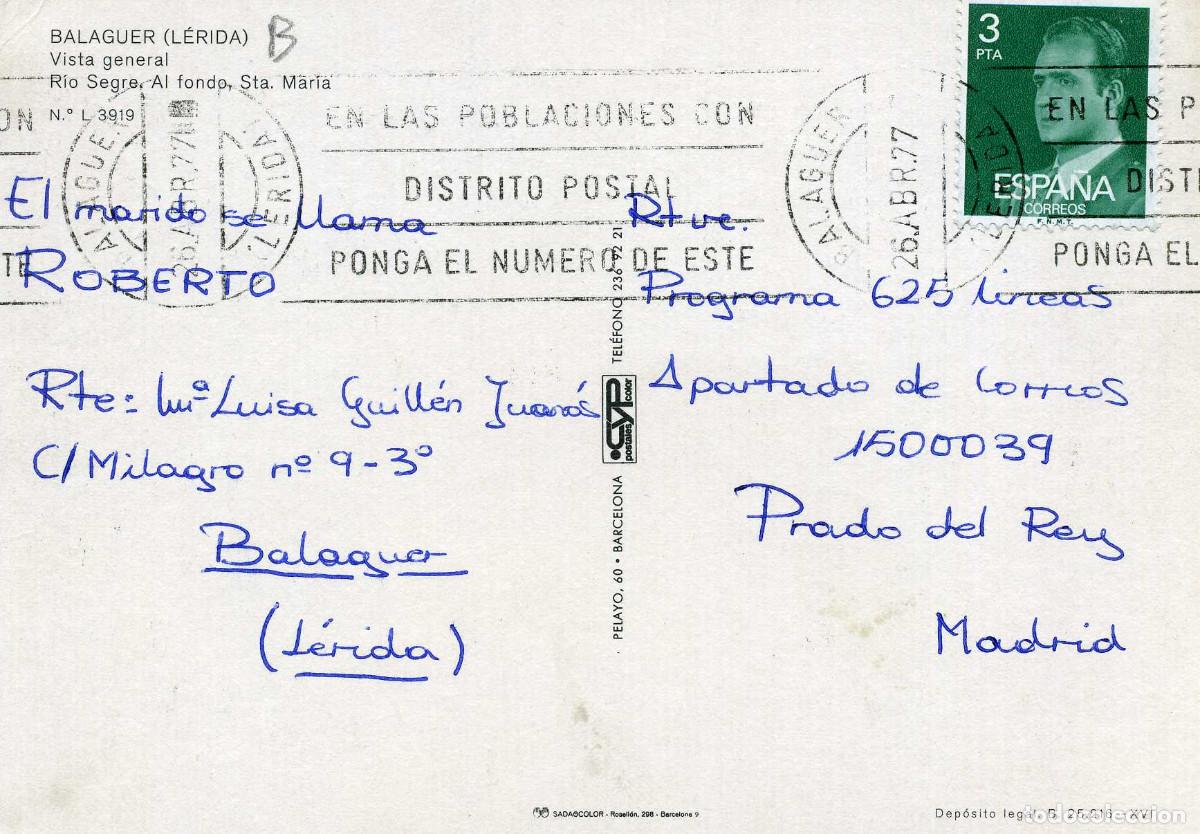 BALAGUER (LÉRIDA) B
Vista general
Río Segre. Al fondo, Sta. María
N.º L 3919
BALAGUER (LERIDA)
26.ABR.77
EN LAS POBLACIONES CON
DISTRITO POSTAL
PONGA EL NUMERO DE ESTE
BALAGUER
26.ABR.77
EN LAS P
DIST
PONGA EL
3
PTA
ESPAÑA
CORREOS
F.N.M.T.
El marido se llama
ROBERTO
Rte: Mª Luisa Guillén
C/ Milagro nº 9-3º
Balaguer
(Lérida)
PELAYO, 60 • BARCELONA
CYP
postales color
TELÉFONO 236 92 21
Rtve.
Programa 625 lineas
Apartado de Correos
1500039
Prado del Rey
Madrid
SADAGCOLOR - Rosellón, 298 - Barcelona 9
Depósito legal, B. 25.216 - XVI
todocoleccion